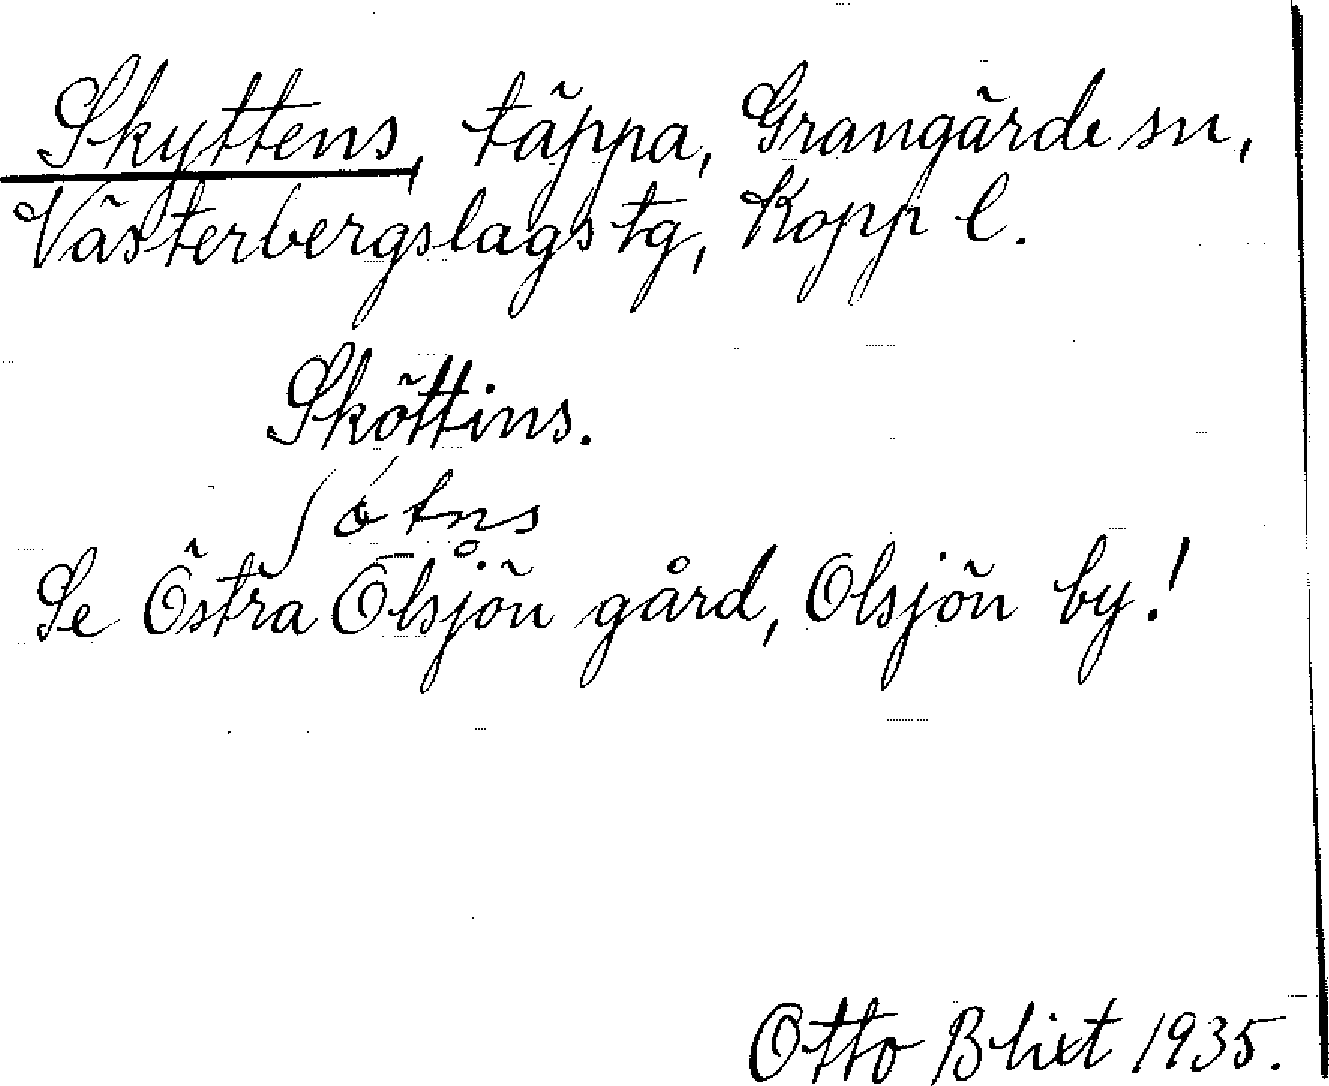 Skyttens, täppa, Grangärde sn,
Västerbergslags tg, Kopp l.
Sköttins.
Se Östra Olsjön gård, Olsjön by!
Otto Blixt 1935.